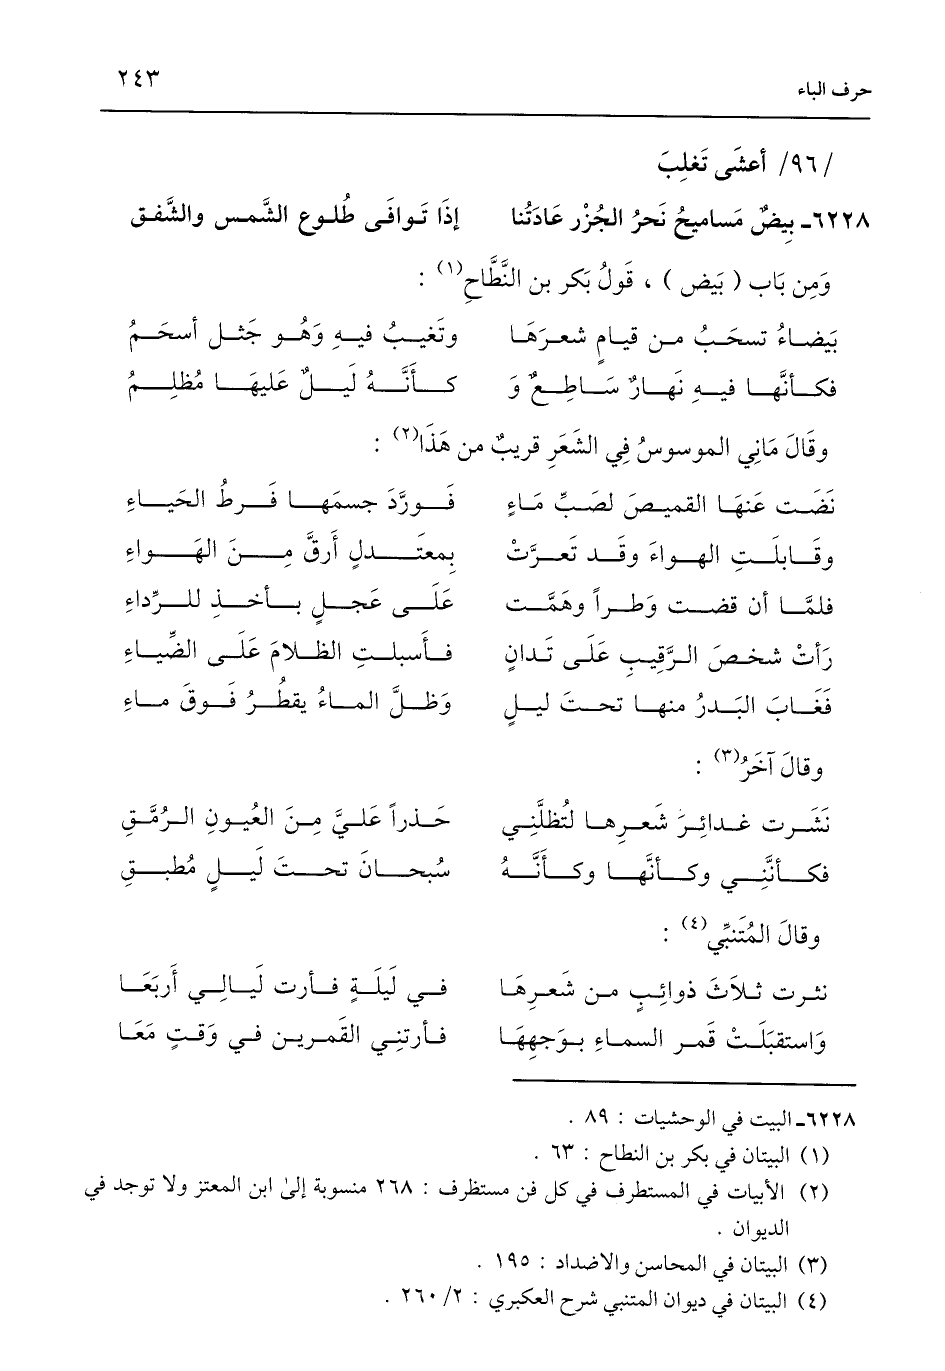 حرف الباء ٢٤٣
/٩٦/ أعشَى تَغلِبَ
٦٢٢٨ـ بِيضٌ مَساميحُ نَحرُ الجُزْر عَادَتُنا إذَا تَوافَى طُلوع الشَّمس والشَّفق
وَمِن بَابِ ( بَيض ) ، قَولُ بَكر بن النَّطَّاحِ(١) :
بَيضاءُ تسحَبُ من قيامٍ شعرَهَا وتَغيبُ فيهِ وَهُو جَثل أسحَمُ
فكأنَّها فيهِ نَهارٌ سَاطِعٌ وَ كأنَّهُ لَيلٌ عَليهَا مُظلِمُ
وقَالَ مَاني الموسوسُ فِي الشَعَرِ قريبٌ من هَذَا(٢) :
نَضَت عَنهَا القميصَ لصَبِّ مَاءٍ فَورَّدَ جسمَها فَرطُ الحَياءِ
وقَابلَتِ الهواءَ وقَد تعرَّتْ بمعتَدلٍ أرقَّ مِنَ الهَواءِ
فلمَّا أن قضت وَطراً وهَمَّت عَلَى عَجلٍ بأخذٍ للرِّداءِ
رَأتْ شخصَ الرَّقيبِ عَلَى تَدانٍ فأسبلتِ الظلامَ عَلَى الضِّياءِ
فَغَابَ البَدرُ منها تحتَ ليلٍ وَظلَّ الماءُ يقطُر فَوقَ ماءِ
وقالَ آخَرُ(٣) :
نَشَرت غدائِرَ شعرِها لتُظلَّني حَذراً عَليَّ مِنَ العُيونِ الرُمَّقِ
فكأنَّني وكأنَّها وكأنَّهُ صُبحانِ تحتَ ليلٍ مُطبقِ
وقالَ المُتَنبِّي(٤) :
نثرت ثلاَثَ ذوائِبٍ من شَعرِهَا في لَيلَةٍ فأرت لَيالي أَربَعَا
وَاستقبَلَتْ قَمر السماءِ بوَجهِهَا فأرتنِي القَمرين في وَقتٍ مَعَا
٦٢٢٨ـ البيت في الوحشيات : ٨٩ .
(١) البيتان في بكر بن النطاح : ٦٣ .
(٢) الأبيات في المستطرف في كل فن مستظرف : ٢٦٨ منسوبة إلىٰ ابن المعتز ولا توجد في
الديوان .
(٣) البيتان في المحاسن والاضداد : ١٩٥ .
(٤) البيتان في ديوان المتنبي شرح العكبري : ٢/ ٢٦٠ .